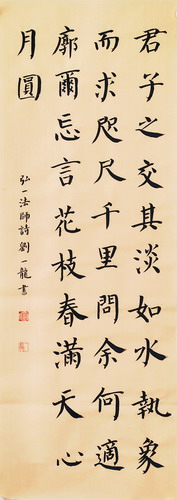 君子之交其淡如水執象
而求咫尺千里問余何適
廓爾忘言花枝春滿天心
月圓
弘一法師詩劉一龍書